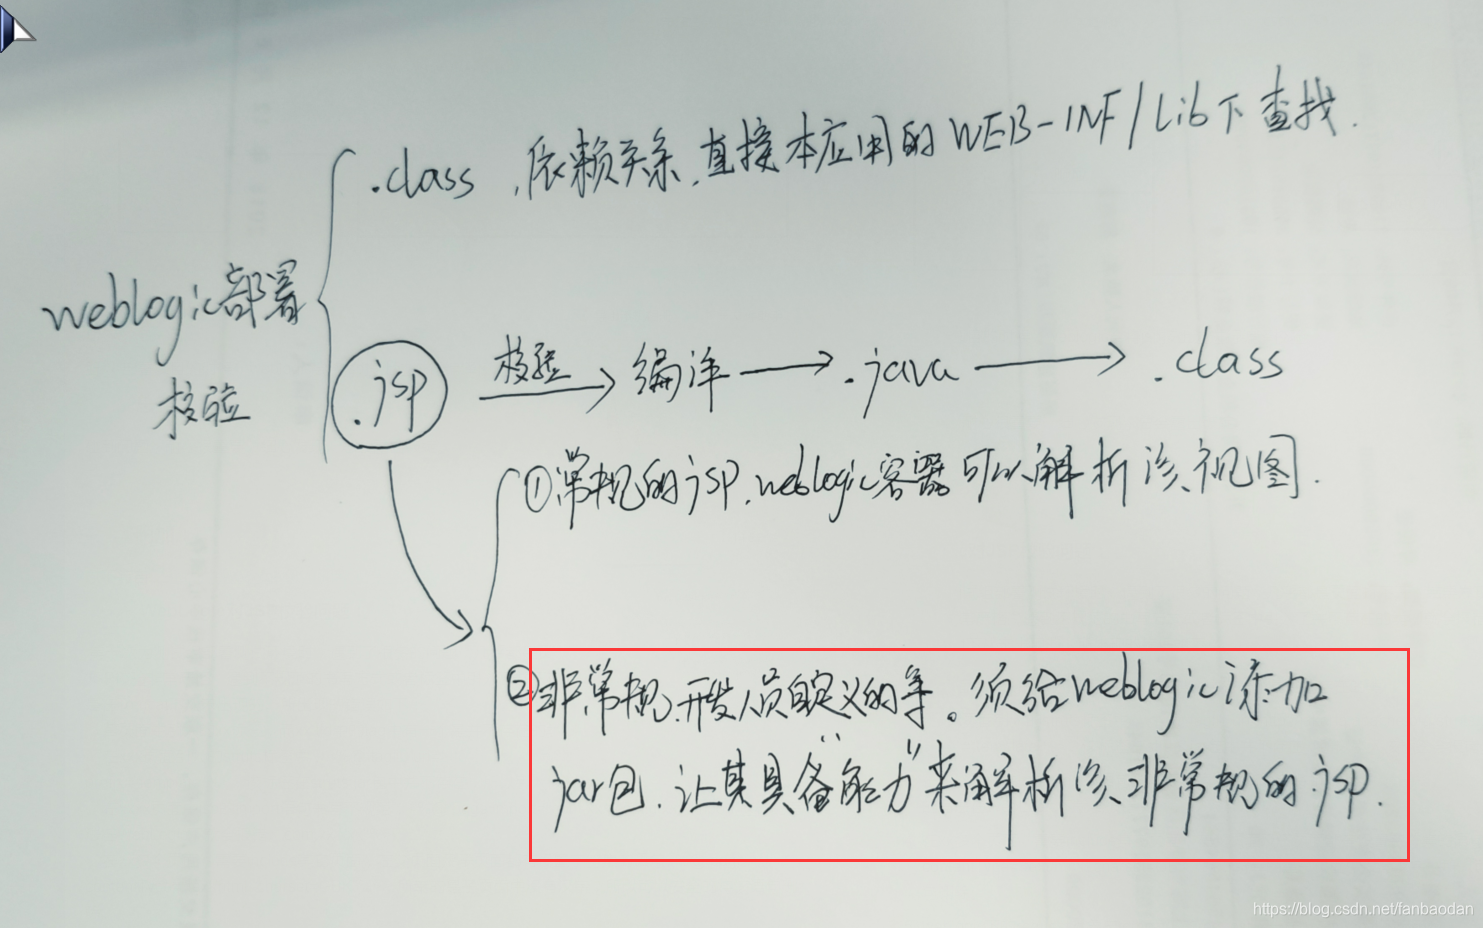 .class ,依赖关系,直接本应用的WEB-INF/Lib下查找.
weblogic部署
校验
.jsp 校验 编译 .java .class
①常规的jsp,weblogic容器可以解析该视图.
②非常规,开发人员自定义的等。须给weblogic添加
jar包,让其具备“能力”来解析该非常规的.jsp.
https://blog.csdn.net/fanbaodan